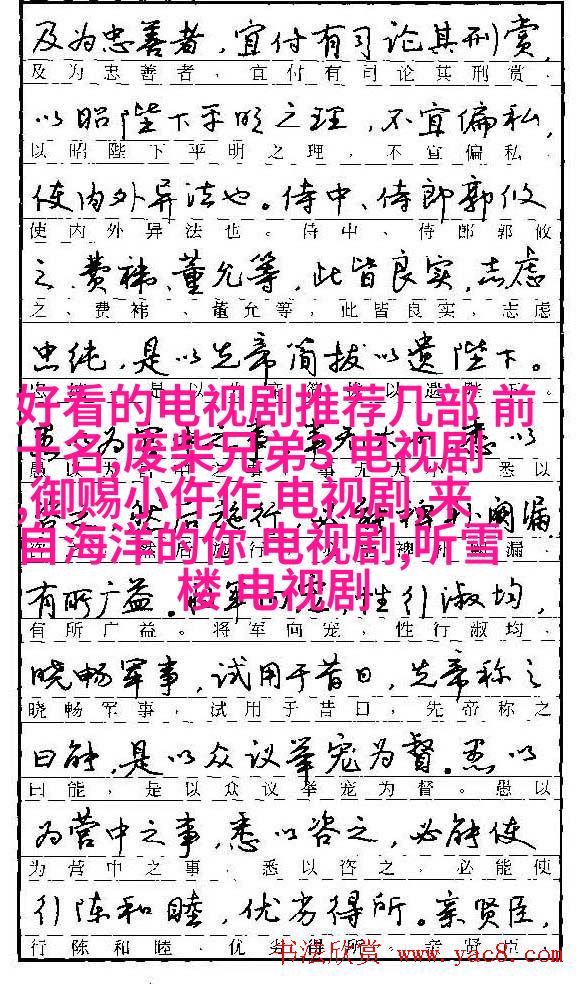 及为忠善者，宜付有司论其刑赏，
及为忠善者，宜付有司论其刑赏，
以昭陛下平明之理，不宜偏私，
以昭陛下平明之理，不宜偏私，
使内外异法也。侍中、侍郎郭攸
使内外异法也。侍中、侍郎郭攸
之、费祎、董允等，此皆良实，志虑
之、费祎、董允等，此皆良实，志虑
忠纯，是以先帝简拔以遗陛下。
好看的电视剧推荐几部 前
十名,废柴兄弟3 电视剧
,御赐小仵作 电视剧,来
自海洋的你 电视剧,听雪
楼 电视剧
悉以
施行，阙漏
有所广益。性行淑均，
有所广益。将军向宠，性行淑均，
晓畅军事，试用于昔日，先帝称之
晓畅军事，试用于昔日，先帝称之
曰能，是以众议举宠为督。愚以
曰能，是以众议举宠为督。愚以
为营中之事，悉以咨之，必能使
为营中之事，悉以咨之，必能使
行阵和睦，优劣得所。亲贤臣，
行阵和睦，优劣得所。亲贤臣，
书法欣赏 www.yac8.com